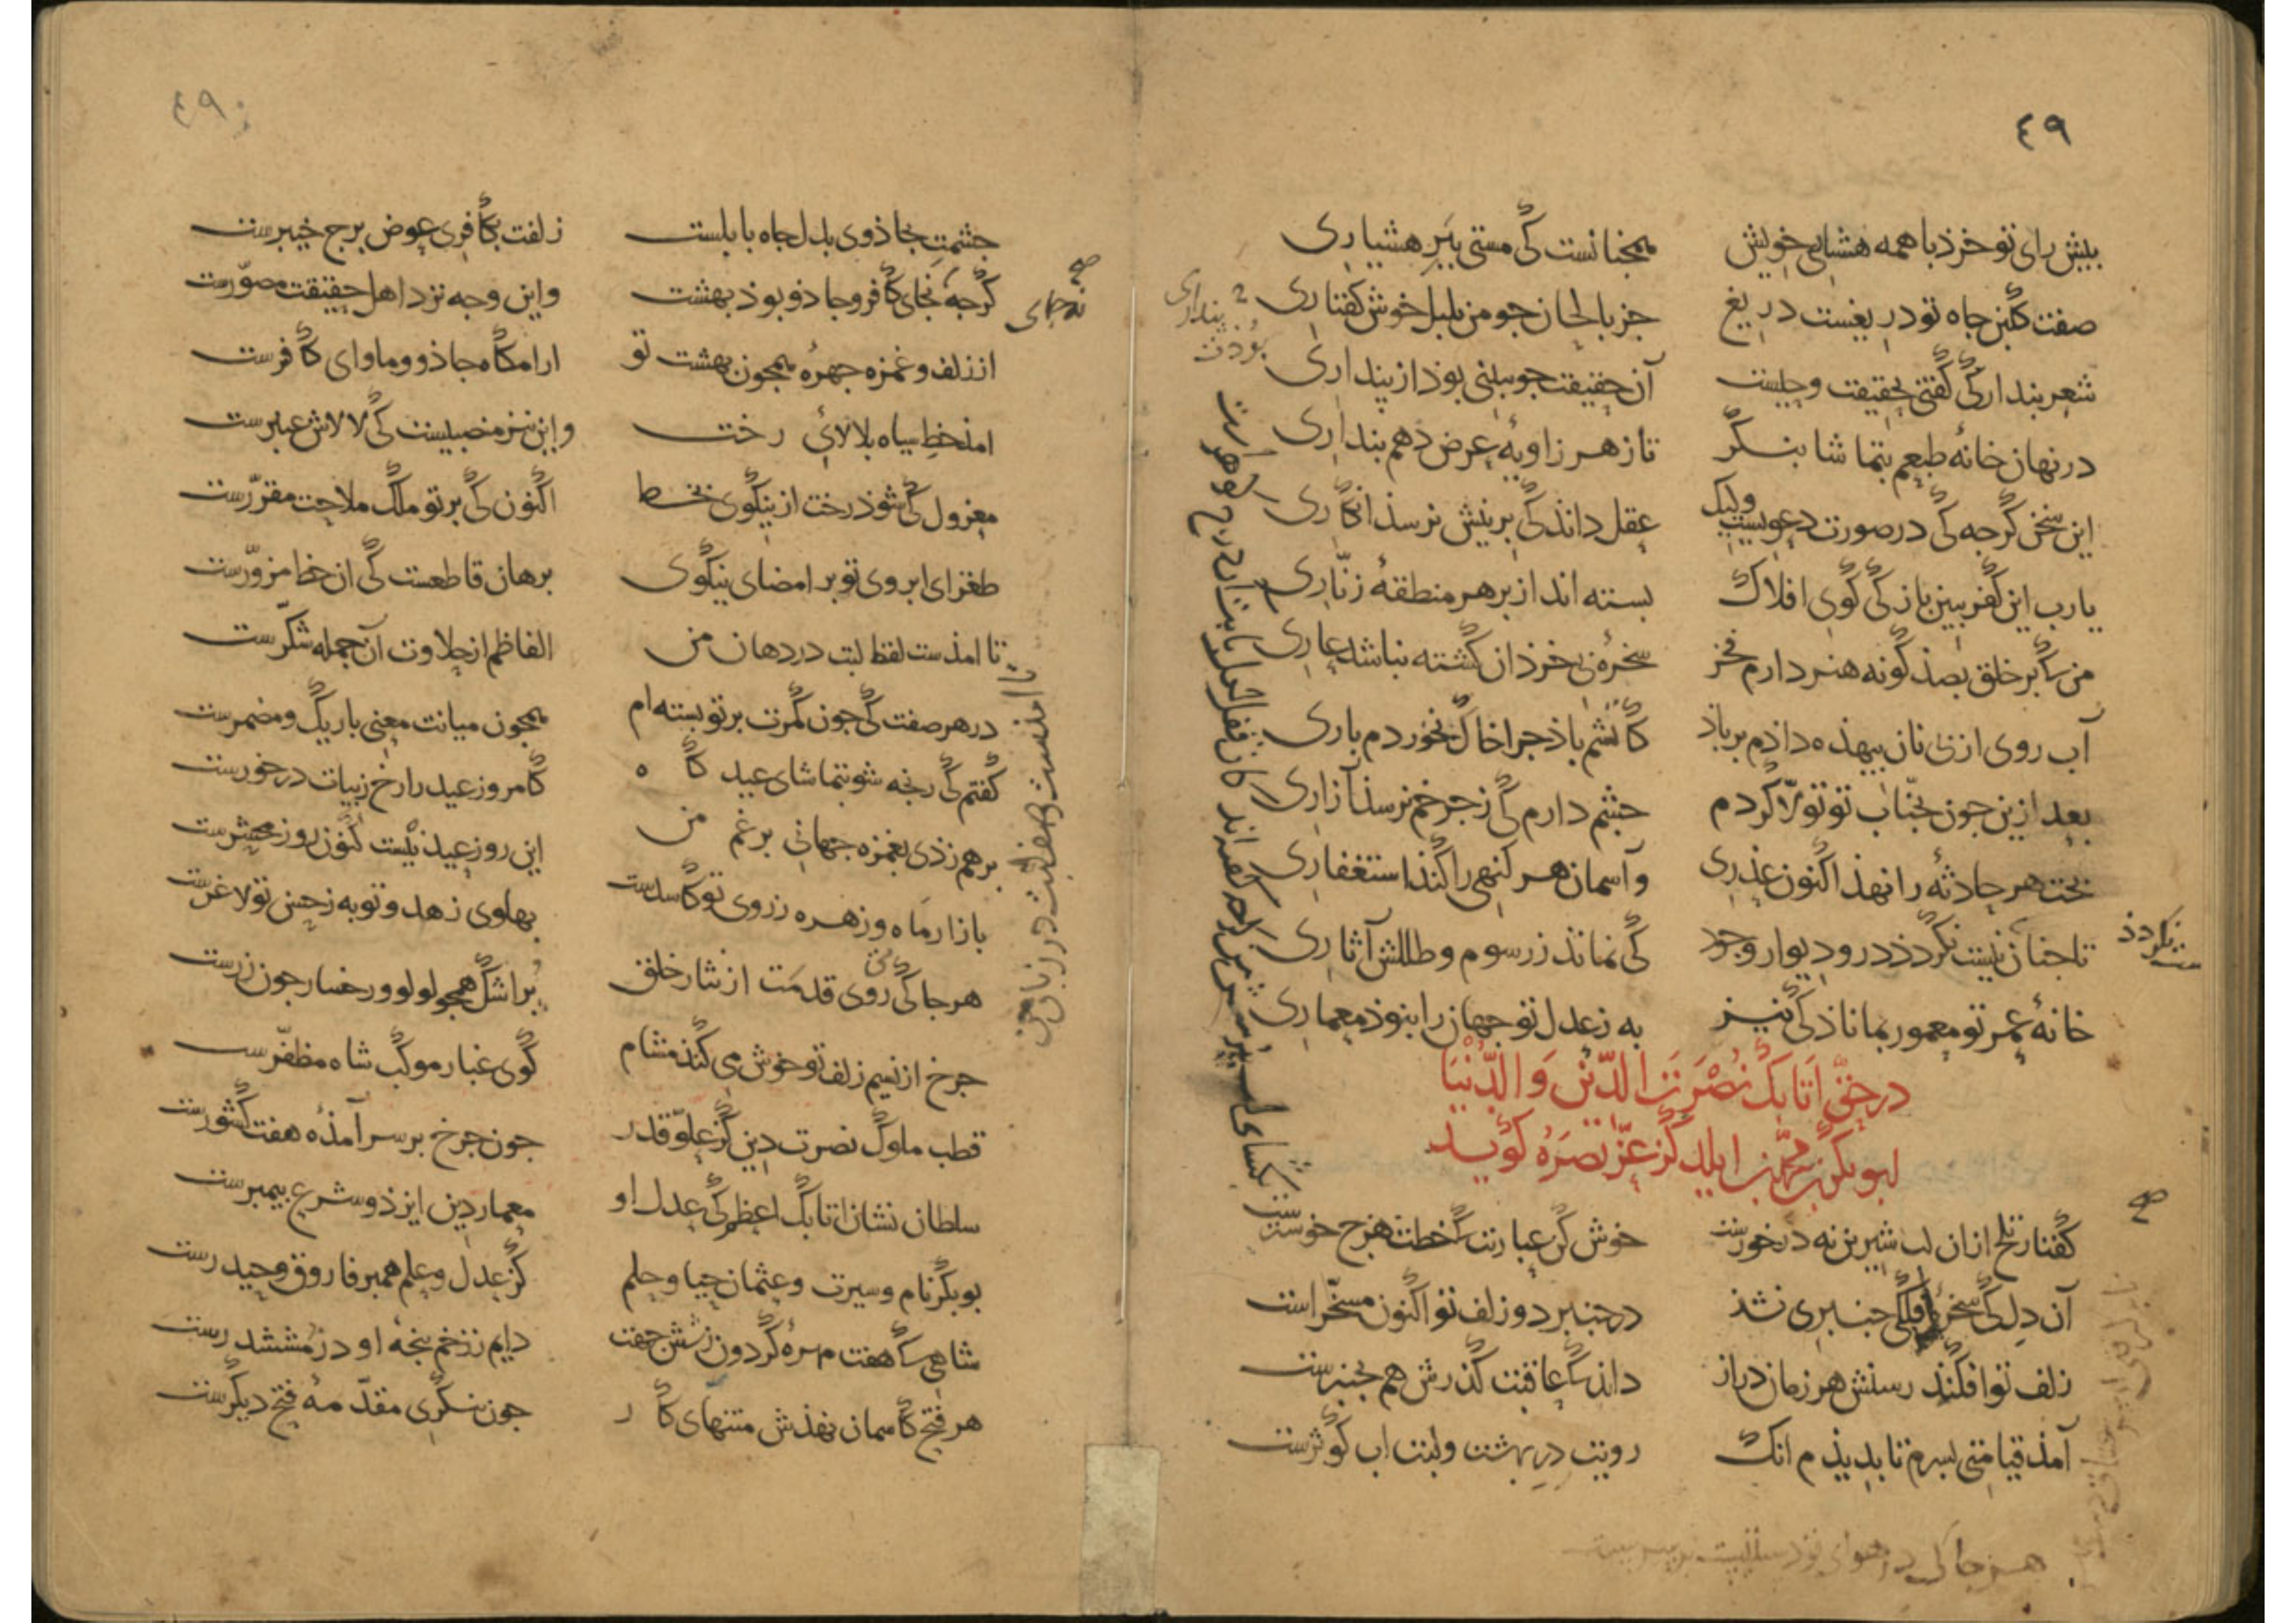 ٤٩
بیش رای تو خرذ با همه هشیاری خویش همجنانست کی مستی ببر هشیاری
صفت گلبن جاه تو دریغست دریغ جز بالحان جو من بلبل خوش گفتاری
شعر بندار کی گفتی بحقیقت وحیست آن حقیقت جو ببینی بوذ از پنداری
در نهان خانهٔ طبعم بتماشا بنگر تا ز هر زاویهٔ عرض دهم بنداری
این سخن گرجه کی در صورت دعویست ولیک عقل داند کی برینش نرسذ انکاری
یا رب این کفر ببین باز کی گوی افلاک بسته اند از بر هر منطقهٔ زنّاری
من که بر خلق بصذ گونه هنر دارم فخر سخرهٔ بی خرذان گشته نباشد عاری
آب روی از بی نان بیهذه داذم بر باذ کاتشم باذ جرا خاک نخوردم باری
بعد ازین جون بجناب تو تولّا کردم جشم دارم کی ز جرخم نرسذ آزاری
بخت هر حادثه را نهذ اکنون عذری و آسمان هر گنهی را کند استغفاری
تا جنان نیست نگردذ در و دیوار وجوذ کی نماند ز رسوم و طللش آثاری
خانهٔ عمر تو معمور بماناذ کی نیز به ز عدل تو جهان را بنوذ معماری
در حقّ اتابک نصرت الدّین و الدّنیا
ابو بکر بن محمّد بن ایلدگز عزّ نصره گوید
گفتار تلخ از ان لب شیرین نه در خورست خوش کن عبارتت که خطت هرج خوشترست
آن دل کی سخرهٔ فلک جنبری نشذ در جنبر دو زلف تو اکنون مسخّر است
زلف تو افکند رسنش هر زمان دراز داند که عاقبت گذرش هم بجنبرست
آمذ قیامتی بسرم تا بدیذم انک رویت در بهشت و لبت اب کوثرست
نگردذ
صح
بنداری
بوذت
٤٩٠
جشمت بجاذوی بدل جاه بابلست زلفت بکافری عوض برج خیبرست
گرجه نجای کافر و جاذو بوذ بهشت و این وجه نزد اهل حقیقت مصوّرست
از زلف و غمزه جهرهٔ همجون بهشت تو ارامگاه جاذو و ماوای کافرست
امذ خط سیاه بلالائی رخت و این نیز منصبیست کی لالاش عنبرست
معزول کی شوذ رخت از نیکوی بخط اکنون کی بر تو ملک ملاحت مقرّرست
طغرای ابروی تو بر امضای نیکوی برهان قاطعست کی ان خط مزوّرست
تا امذست لفظ لبت در دهان من الفاظم از حلاوت آن جمله شکّرست
در هر صفت کی جون کمرت بر تو بسته ام همجون میانت معنی باریک و مضمرست
گفتم کی رنجه شو بتماشای عید گاه کامروز عید را رخ زیبات در خورست
بر هم زذی بغمزه جهانی بر غم من این روز عیذ نیست کنون روز محشرست
بازار ماه و زهره ز روی تو کاسدست بهلوی زهد و توبه ز حسن تو لاغرست
هر جا کی روی قدمت از نثار خلق بر اشک همجو لولو و رخسار جون زرست
جرخ از نسیم زلف تو خوش می کند مشام گوی غبار موکب شاه مظفّرست
قطب ملوک نصرت دین کز علوّ قدر جون جرخ بر سر آمذهٔ هفت کشورست
سلطان نشان اتابک اعظم کی عدل او معمار دین ایزذ و شرع بیمبرست
بوبکر نام و سیرت و عثمان حیا و حلم کز عدل و علم همبر فاروق و حیدرست
شاهی که هفت مهرهٔ گردون ز شش جهت دایم ز زخم بنجهٔ او در مششدرست
هر فتح کاسمان نهذش منتهای کار جون بنگری مقدّمهٔ فتح دیگرست
صح
نه جای
تا امذست وصف لبت در زبان من